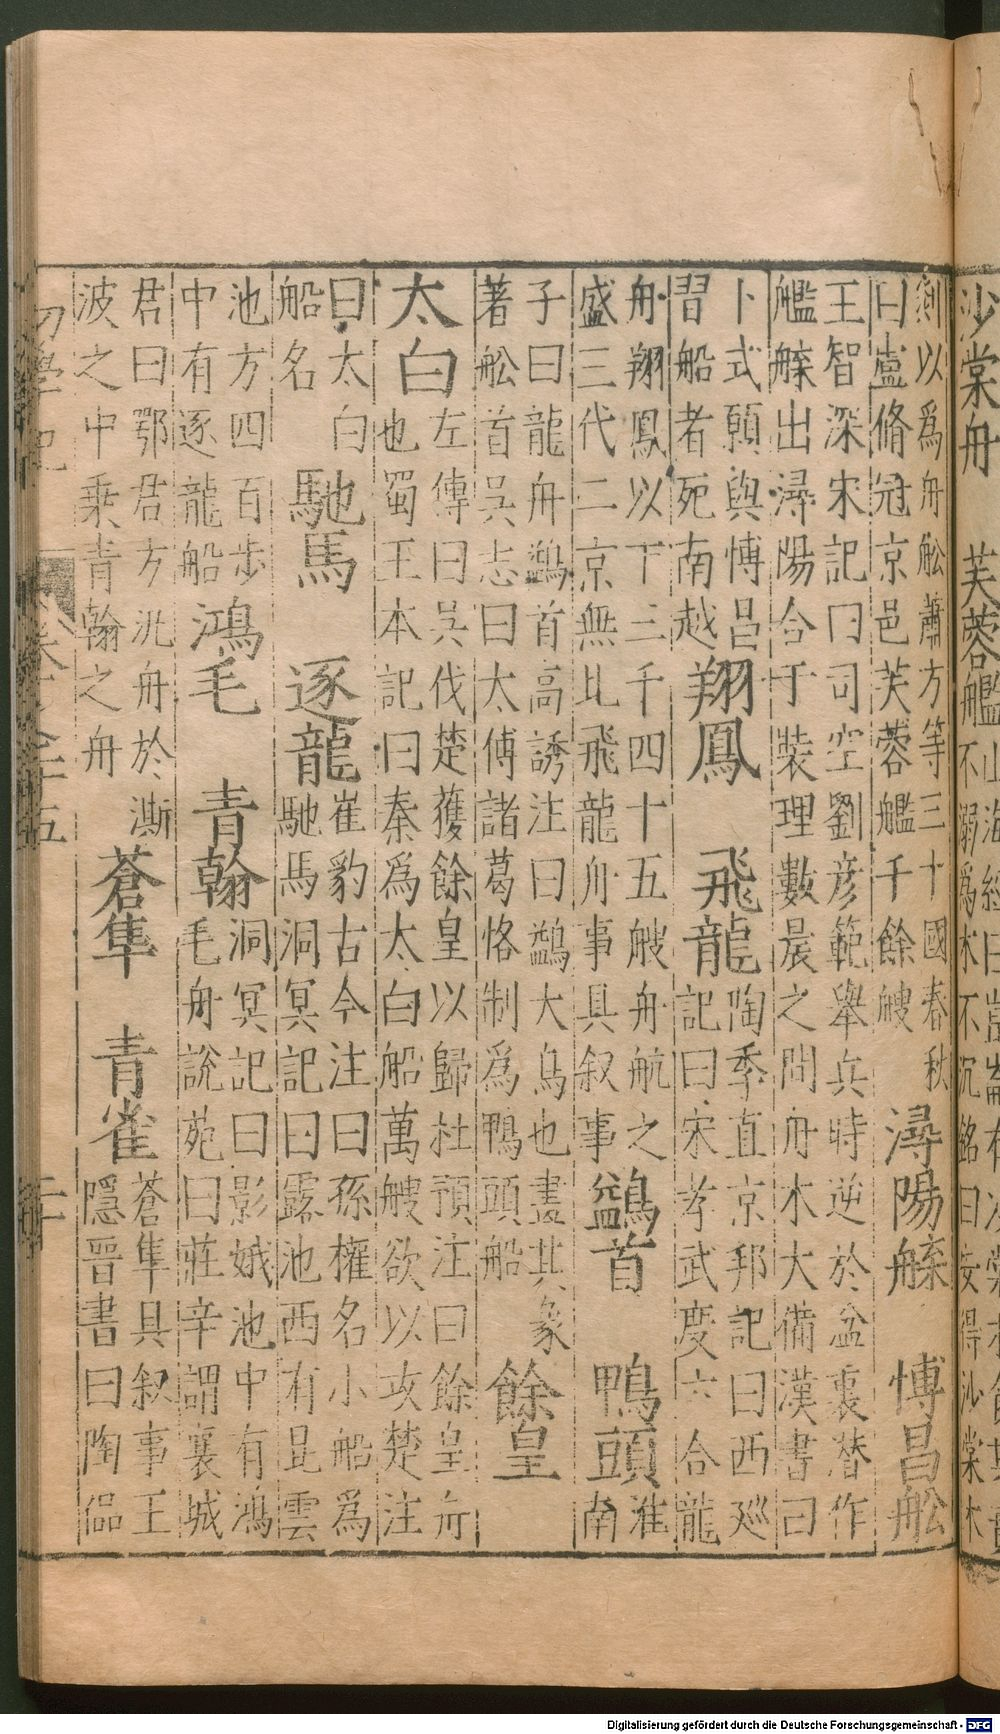 沙棠舟　芙蓉艦
制以為舟舩蕭方等三十國春秋
曰盧脩冠京邑芙蓉艦千餘艘
潯陽䑽　博昌舩
王智深宋記曰司空劉彦範舉兵時逆於盆裏替作
艦䑽出潯陽合于裝理數晨之間舟木大備漢書曰
卜式願與博呂
習船者死南越
翔鳳　飛龍
陶季直京邦記曰西廵
記曰宋孝武度六合龍
舟翔鳳以下三千四十五艘舟航之
盛三代二京無比飛龍舟事具叙事
鷁首　鴨頭
淮
南
子曰龍舟鷁首高誘注曰鷁大鳥也畫其象
著舩首吳志曰太傅諸葛恪制為鴨頭船
餘皇
太白
左傳曰吳伐楚獲餘皇以歸杜預注曰餘皇舟
也蜀王本記曰秦為太白船萬艘欲以攻楚注
曰太白
船名
馳馬　逐龍
崔豹古今注曰孫權名小船為
馳馬洞冥記曰露池西有昆雲
池方四百步
中有逐龍船
鴻毛　青翰
洞冥記曰影娥池中有鴻
毛舟說苑曰莊辛謂襄城
君曰鄂君方汎舟於澌
波之中乗青翰之舟
蒼隼　青雀
蒼隼具叙事王
隱晉書曰陶侃
初學記　卷二十五　二十
Digitalisierung gefördert durch die Deutsche Forschungsgemeinschaft - DFG